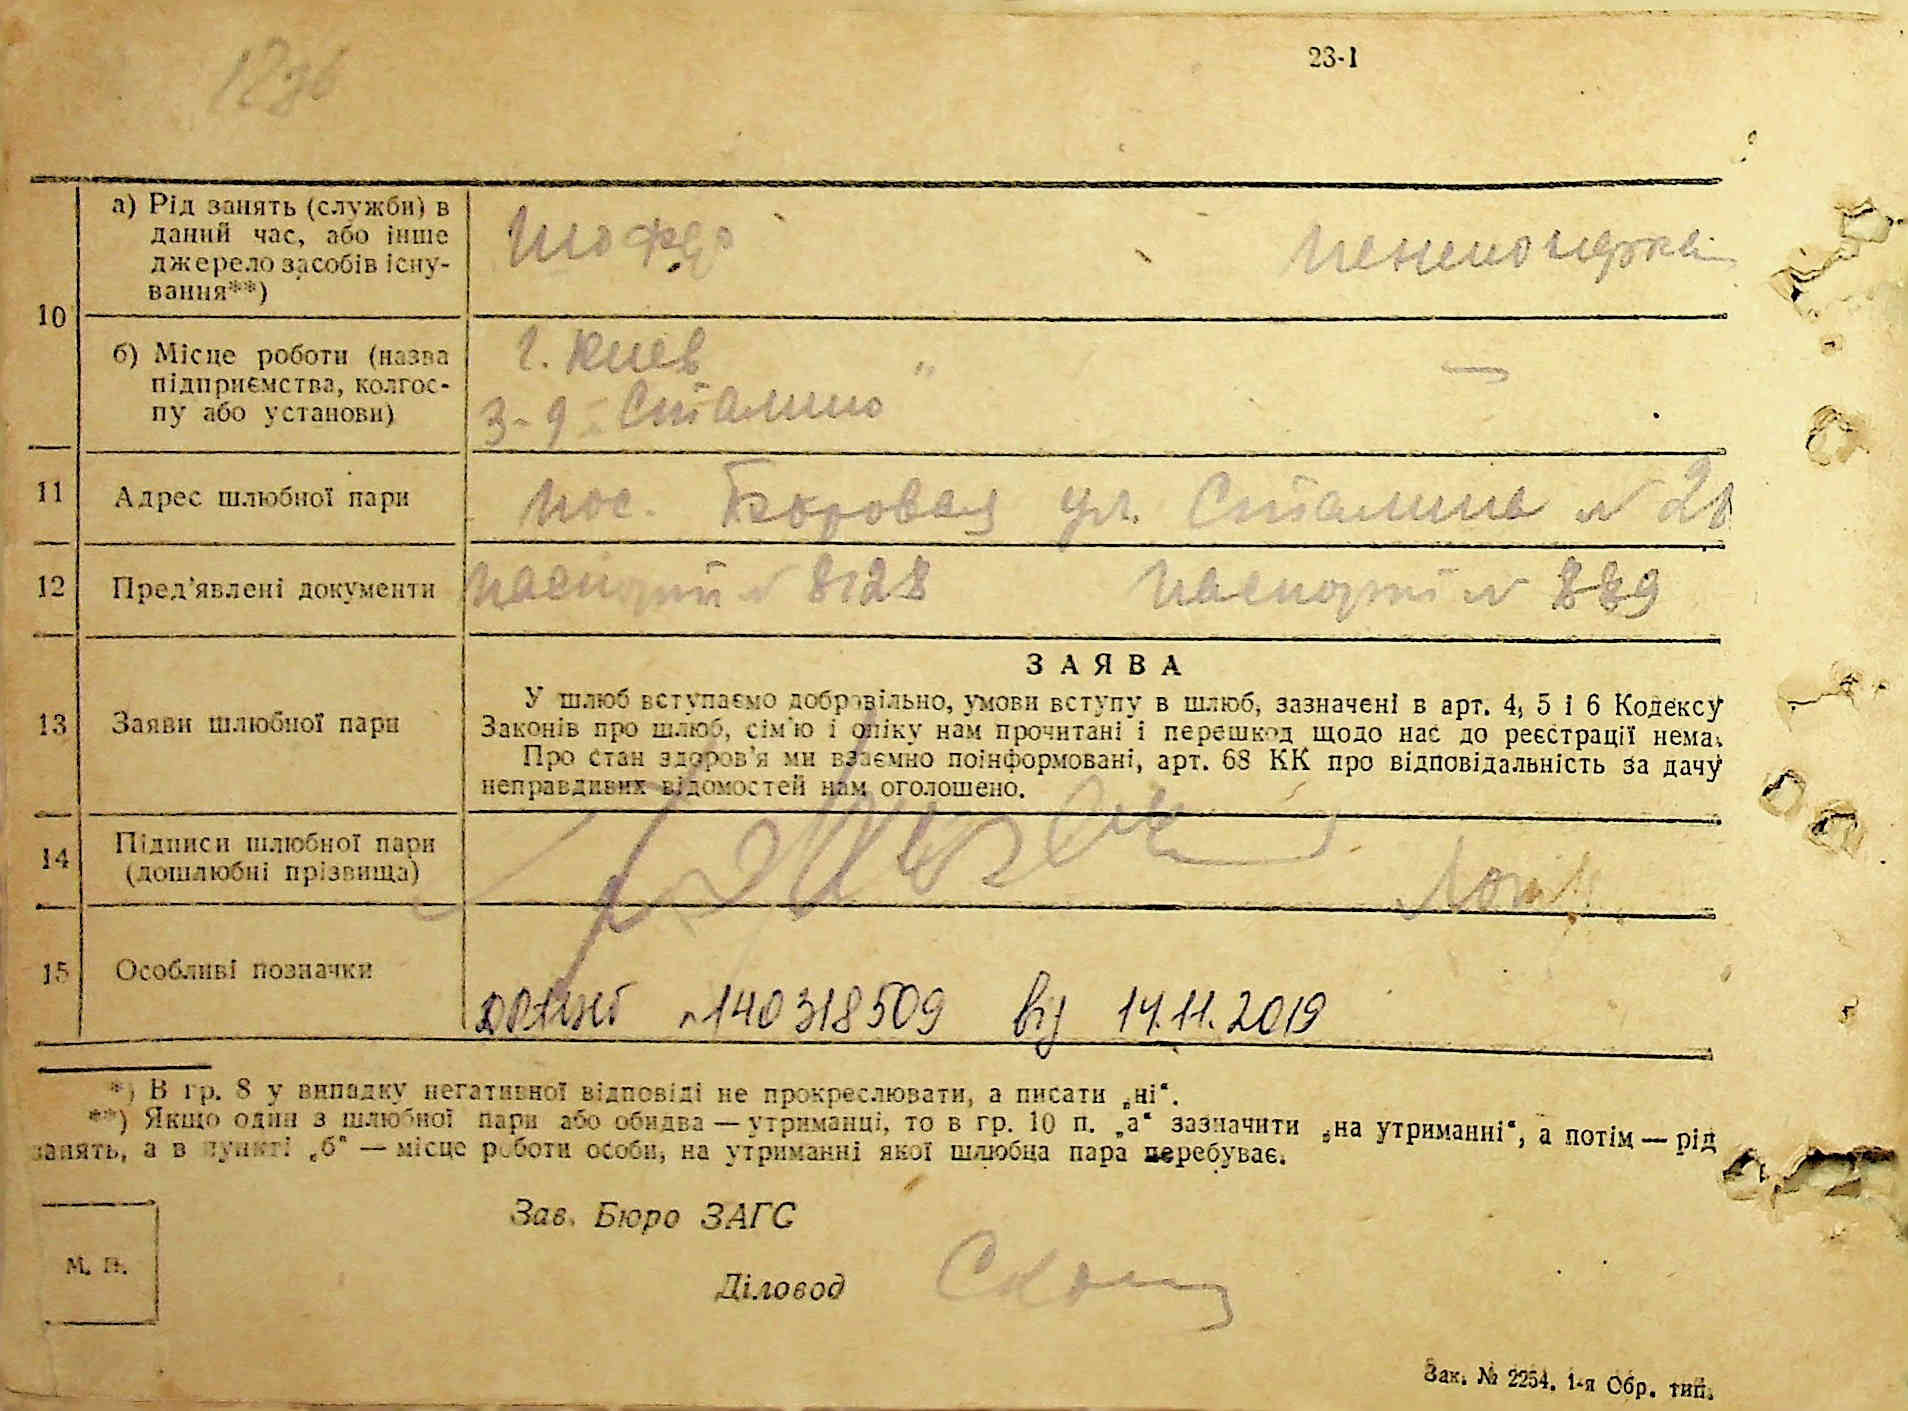 23-1
10
а) Рід занять (служби) в
даний час, або інше
джерело засобів існу-
вання**)
Шофер
б) Місце роботи (назва
підприємства, колгос-
пу або установи)
г. Киев "
з-д Сталино
11 Адрес шлюбної пари пос. Боровая ул. Сталина №
12 Пред'явлені документи Паспорт № 8128 Паспорт № 889
13 Заяви шлюбної пари
ЗАЯВА
У шлюб вступаємо добровільно, умови вступу в шлюб, зазначені в арт. 4, 5 і 6 Кодексу
Законів про шлюб, сім'ю і опіку нам прочитані і перешкод щодо нас до реєстрації нема.
Про стан здоров'я ми взаємно поінформовані, арт. 68 КК про відповідальність за дачу
неправдивих відомостей нам оголошено.
14 Підписи шлюбної пари
(дошлюбні прізвища)
15 Особливі позначки
140318509 від 14.11.2019
*) В гр. 8 у випадку негативної відповіді не прокреслювати, а писати „ні“.
**) Якщо один з шлюбної пари або обидва — утриманці, то в гр. 10 п. „а“ зазначити „на утриманні“, а потім — рід
занять, а в пункті „б“ — місце роботи особи, на утриманні якої шлюбна пара перебуває.
Зав. Бюро ЗАГС
М. П.
Діловод
Зак. № 2254. 1-я Обр. тип.